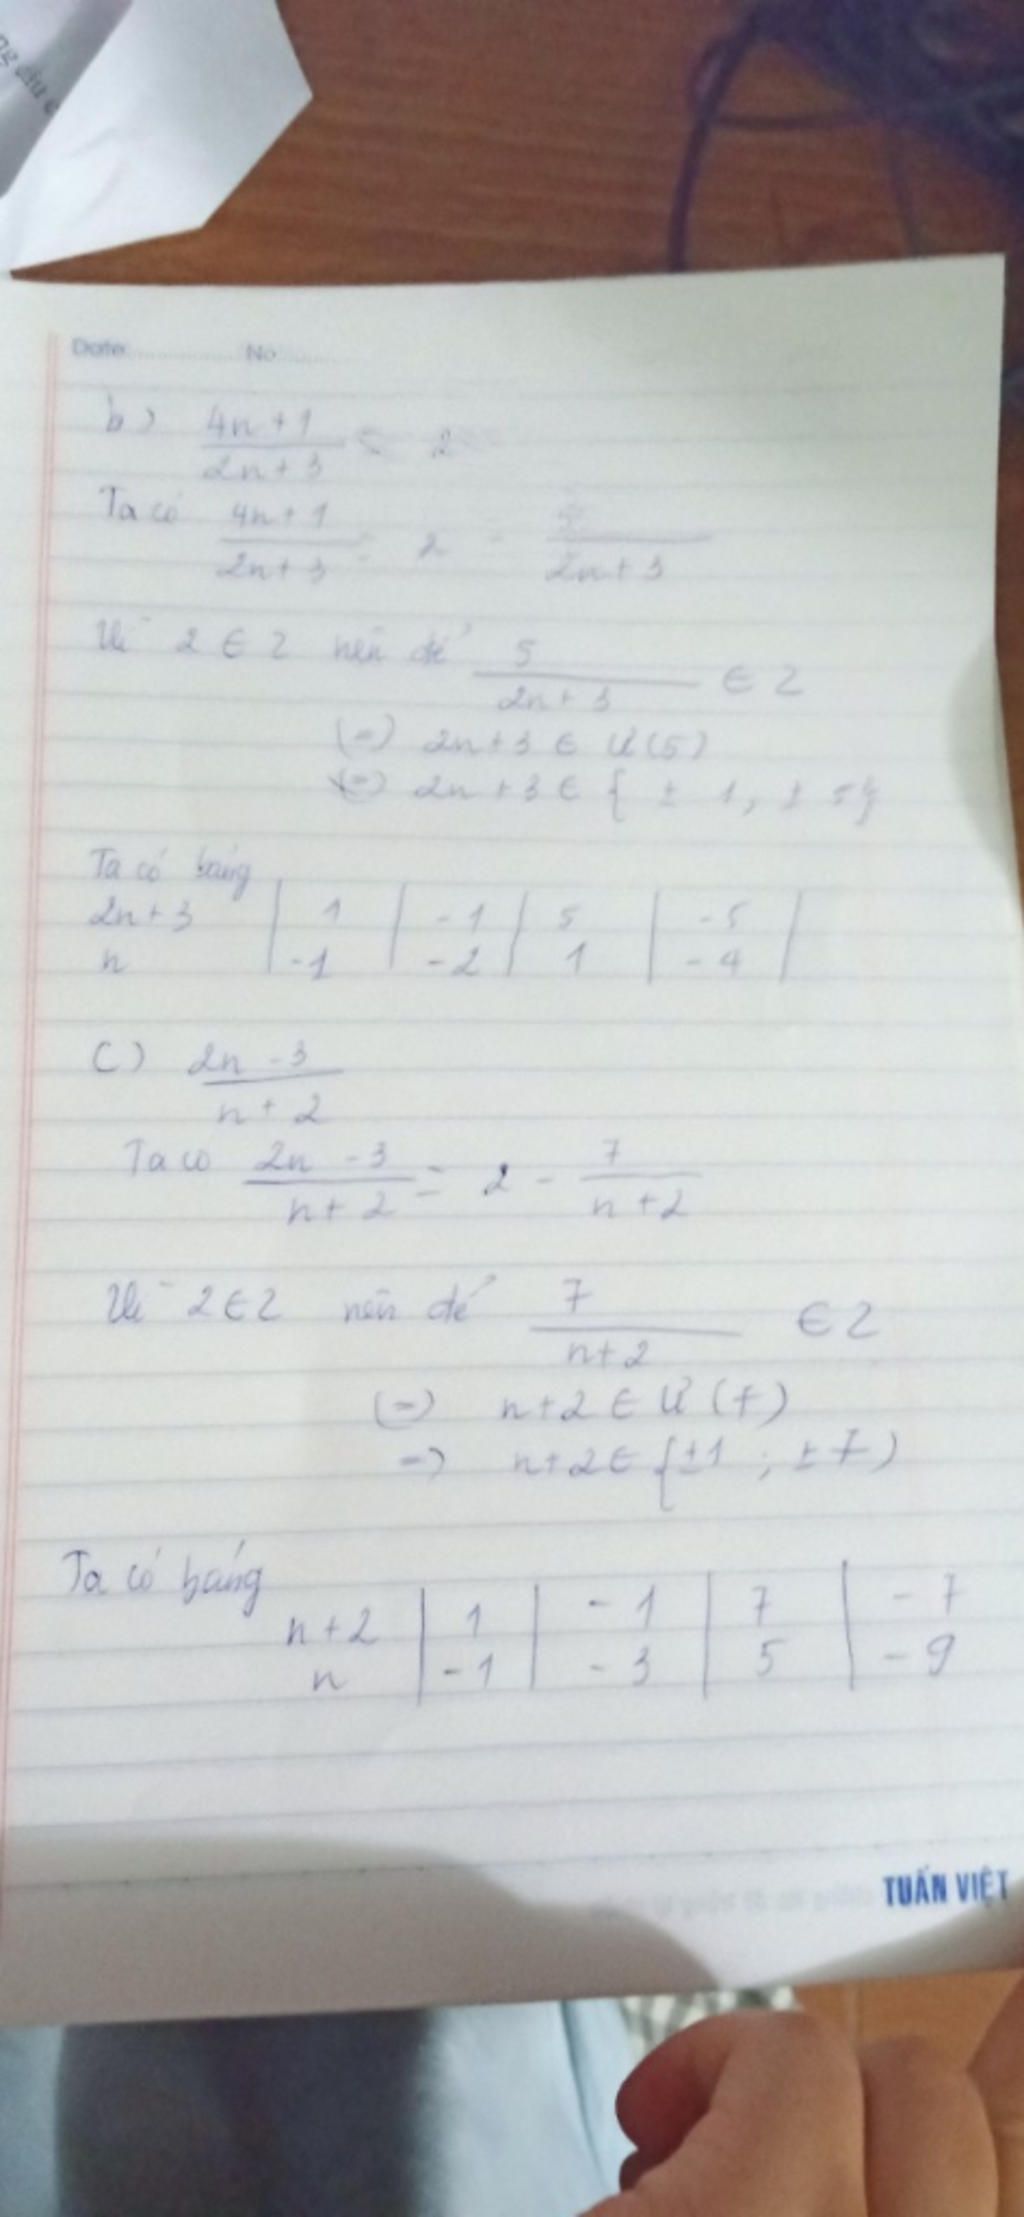 Date: No
b) 4n+1 / 2n+3 = 2
Ta có 4n+1 / 2n+3 = 2 - 5 / 2n+3
Vì 2 ∈ Z nên để 5 / 2n+3 ∈ Z
(=) 2n+3 ∈ Ư(5)
(=) 2n+3 ∈ { ± 1, ± 5}
Ta có bảng
2n+3 | 1 | -1 | 5 | -5 |
n | -1 | -2 | 1 | -4 |
C) 2n-3 / n+2
Ta có 2n-3 / n+2 = 2 - 7 / n+2
Vì 2 ∈ Z nên để 7 / n+2 ∈ Z
(=) n+2 ∈ Ư (7)
=) n+2 ∈ {±1 ; ±7)
Ta có bảng
n+2 | 1 | -1 | 7 | -7
n | -1 | -3 | 5 | -9
TUẤN VIỆT